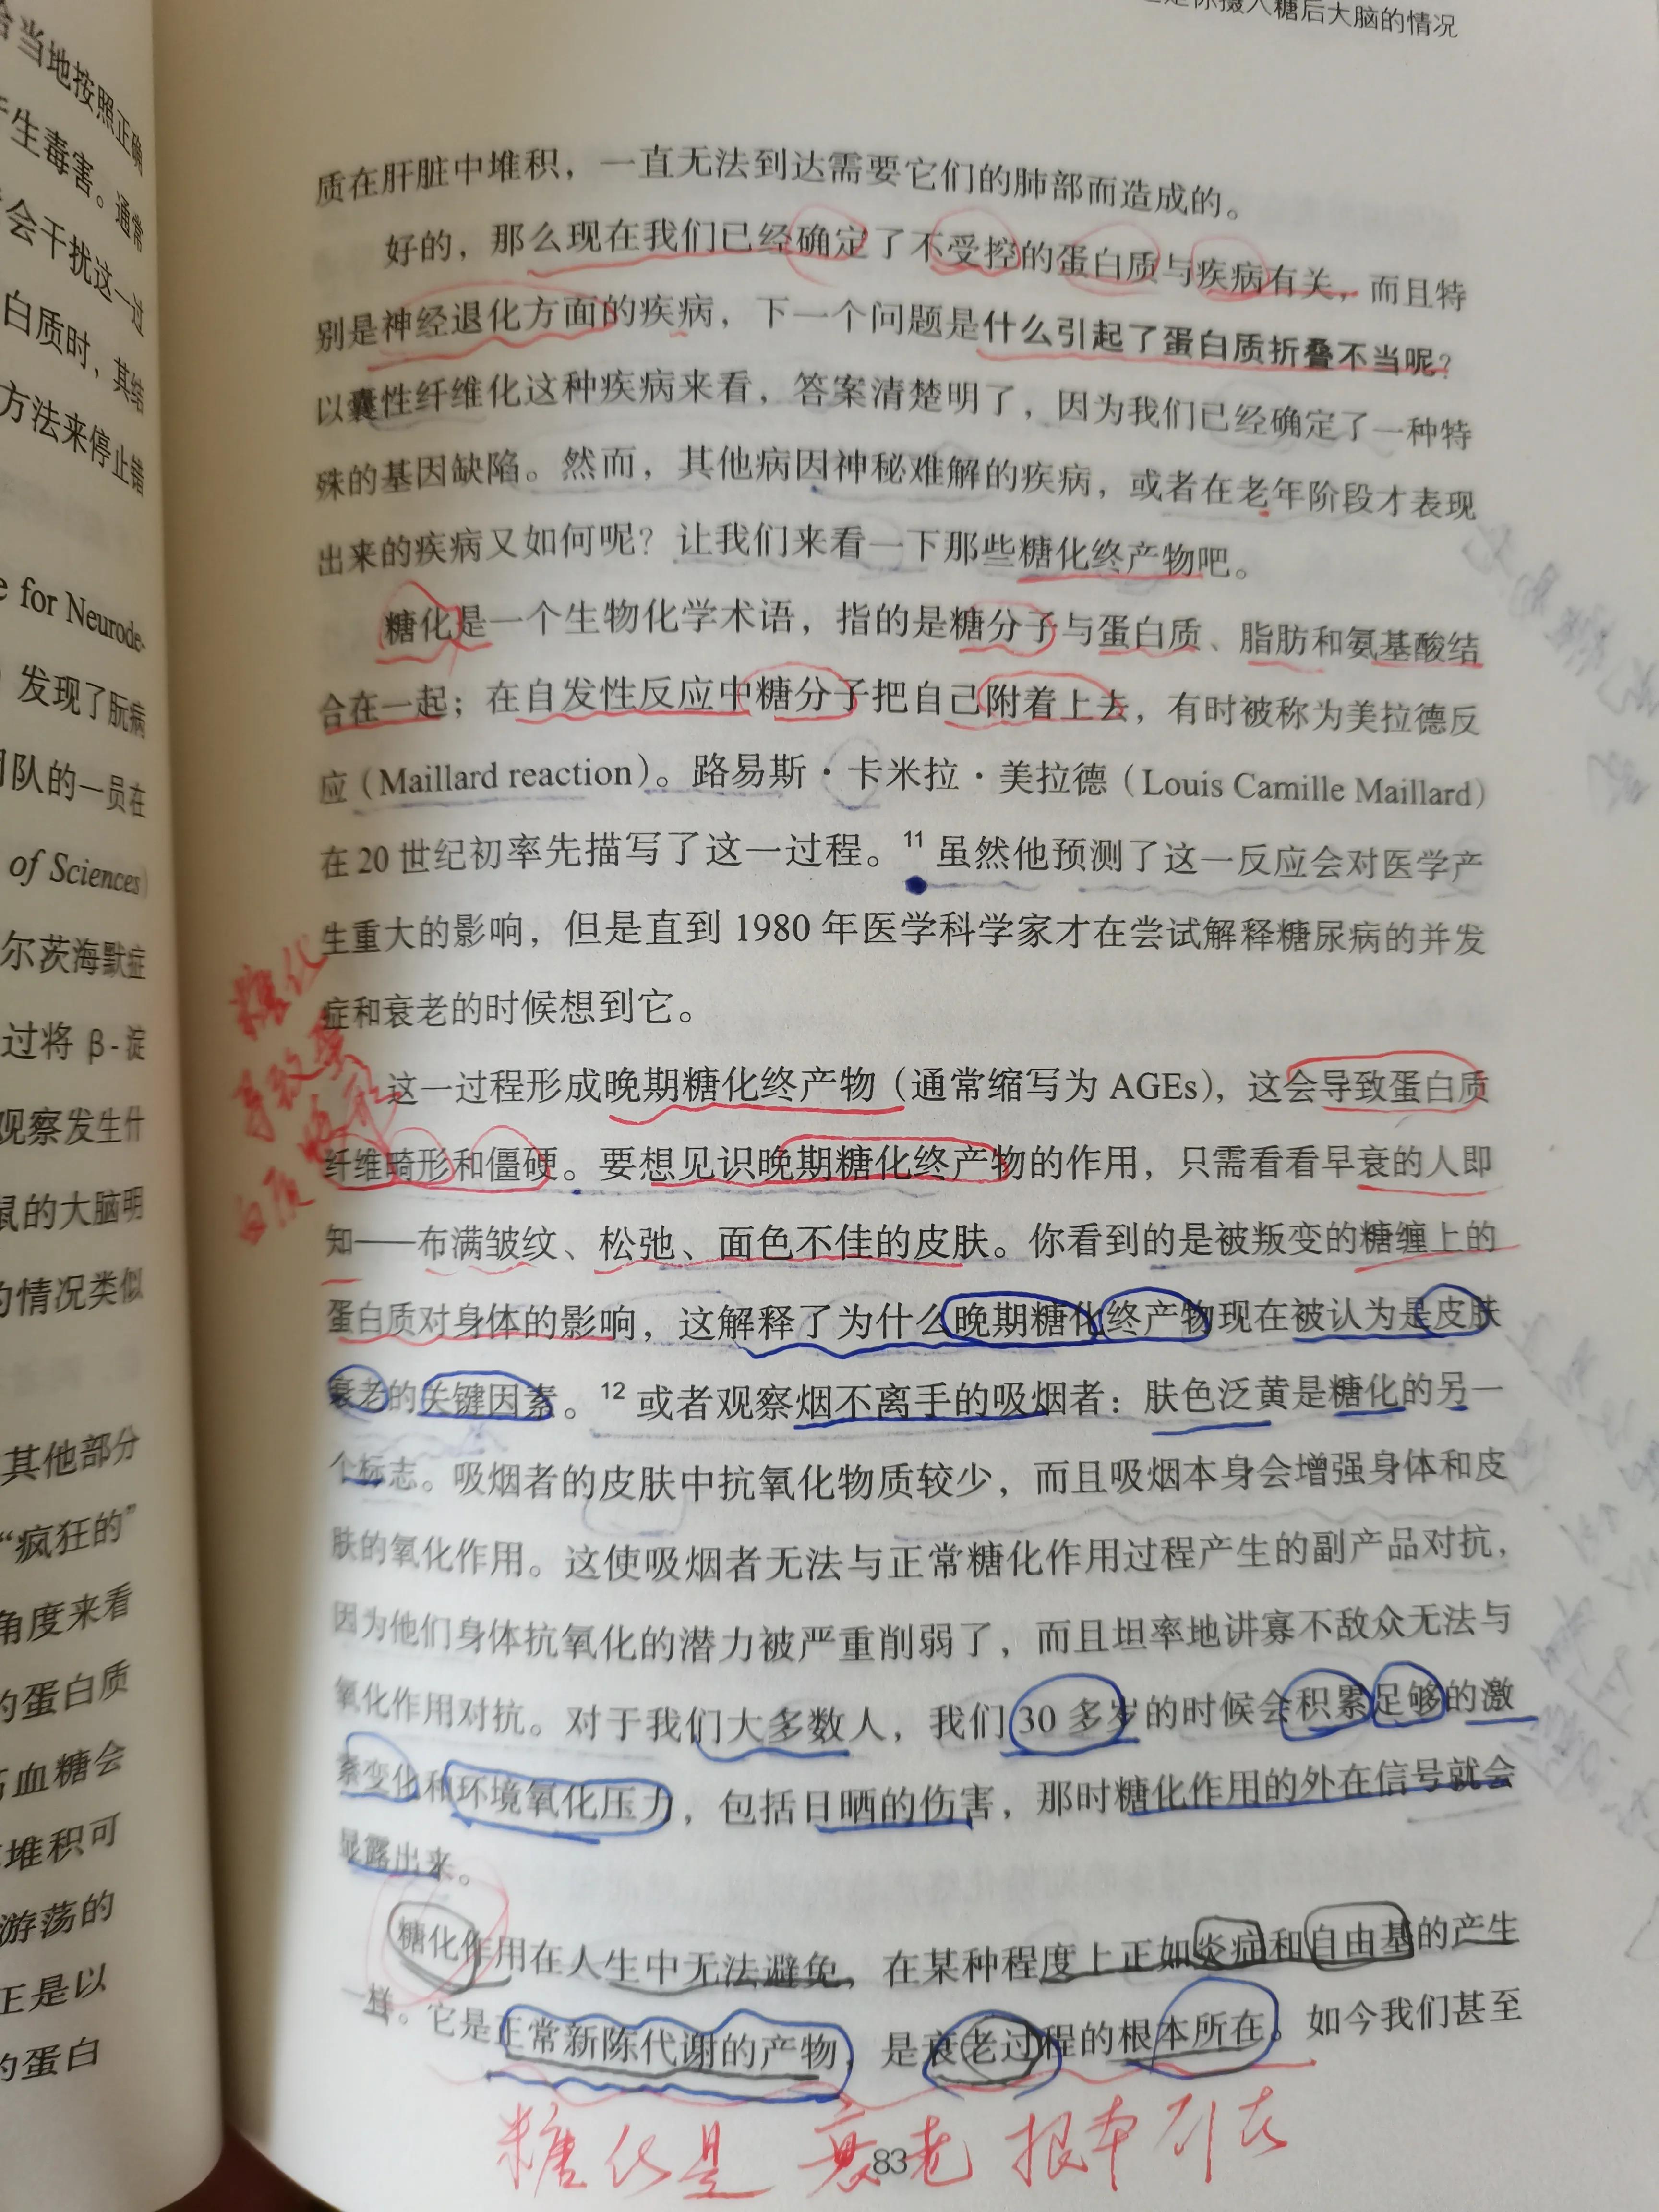 恰当地按照正确
产生毒害。通常
会干扰这一过
白质时，其结
方法来停止错
e for Neurode-
）发现了朊病
团队的一员在
of Sciences）
尔茨海默症
过将 β-淀
观察发生什
鼠的大脑明
的情况类似
其他部分
“疯狂的”
角度来看
的蛋白质
高血糖会
堆积可
游荡的
正是以
的蛋白
是你摄入糖后大脑的情况
质在肝脏中堆积，一直无法到达需要它们的肺部而造成的。
好的，那么现在我们已经确定了不受控的蛋白质与疾病有关，而且特
别是神经退化方面的疾病，下一个问题是什么引起了蛋白质折叠不当呢？
以囊性纤维化这种疾病来看，答案清楚明了，因为我们已经确定了一种特
殊的基因缺陷。然而，其他病因神秘难解的疾病，或者在老年阶段才表现
出来的疾病又如何呢？让我们来看一下那些糖化终产物吧。
糖化是一个生物化学术语，指的是糖分子与蛋白质、脂肪和氨基酸结
合在一起；在自发性反应中糖分子把自己附着上去，有时被称为美拉德反
应（Maillard reaction）。路易斯·卡米拉·美拉德（Louis Camille Maillard）
在 20 世纪初率先描写了这一过程。11 虽然他预测了这一反应会对医学产
生重大的影响，但是直到 1980 年医学科学家才在尝试解释糖尿病的并发
症和衰老的时候想到它。
这一过程形成晚期糖化终产物（通常缩写为 AGEs），这会导致蛋白质
纤维畸形和僵硬。要想见识晚期糖化终产物的作用，只需看看早衰的人即
知——布满皱纹、松弛、面色不佳的皮肤。你看到的是被叛变的糖缠上的
蛋白质对身体的影响，这解释了为什么晚期糖化终产物现在被认为是皮肤
衰老的关键因素。12 或者观察烟不离手的吸烟者：肤色泛黄是糖化的另一
个标志。吸烟者的皮肤中抗氧化物质较少，而且吸烟本身会增强身体和皮
肤的氧化作用。这使吸烟者无法与正常糖化作用过程产生的副产品对抗，
因为他们身体抗氧化的潜力被严重削弱了，而且坦率地讲寡不敌众无法与
氧化作用对抗。对于我们大多数人，我们 30 多岁的时候会积累足够的激
素变化和环境氧化压力，包括日晒的伤害，那时糖化作用的外在信号就会
显露出来。
糖化作用在人生中无法避免，在某种程度上正如炎症和自由基的产生
一样。它是正常新陈代谢的产物，是衰老过程的根本所在。如今我们甚至
糖化
导致蛋
白质畸形
糖化是衰老根本所在
83